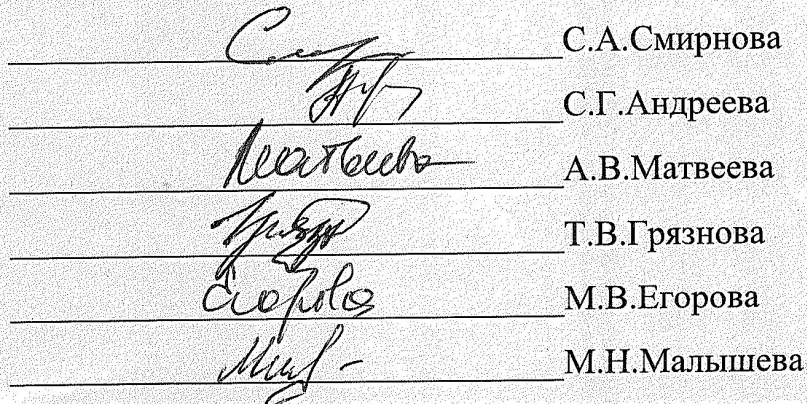 С.А.Смирнова
С.Г.Андреева
Матвеева А.В.Матвеева
Т.В.Грязнова
М.В.Егорова
М.Н.Малышева